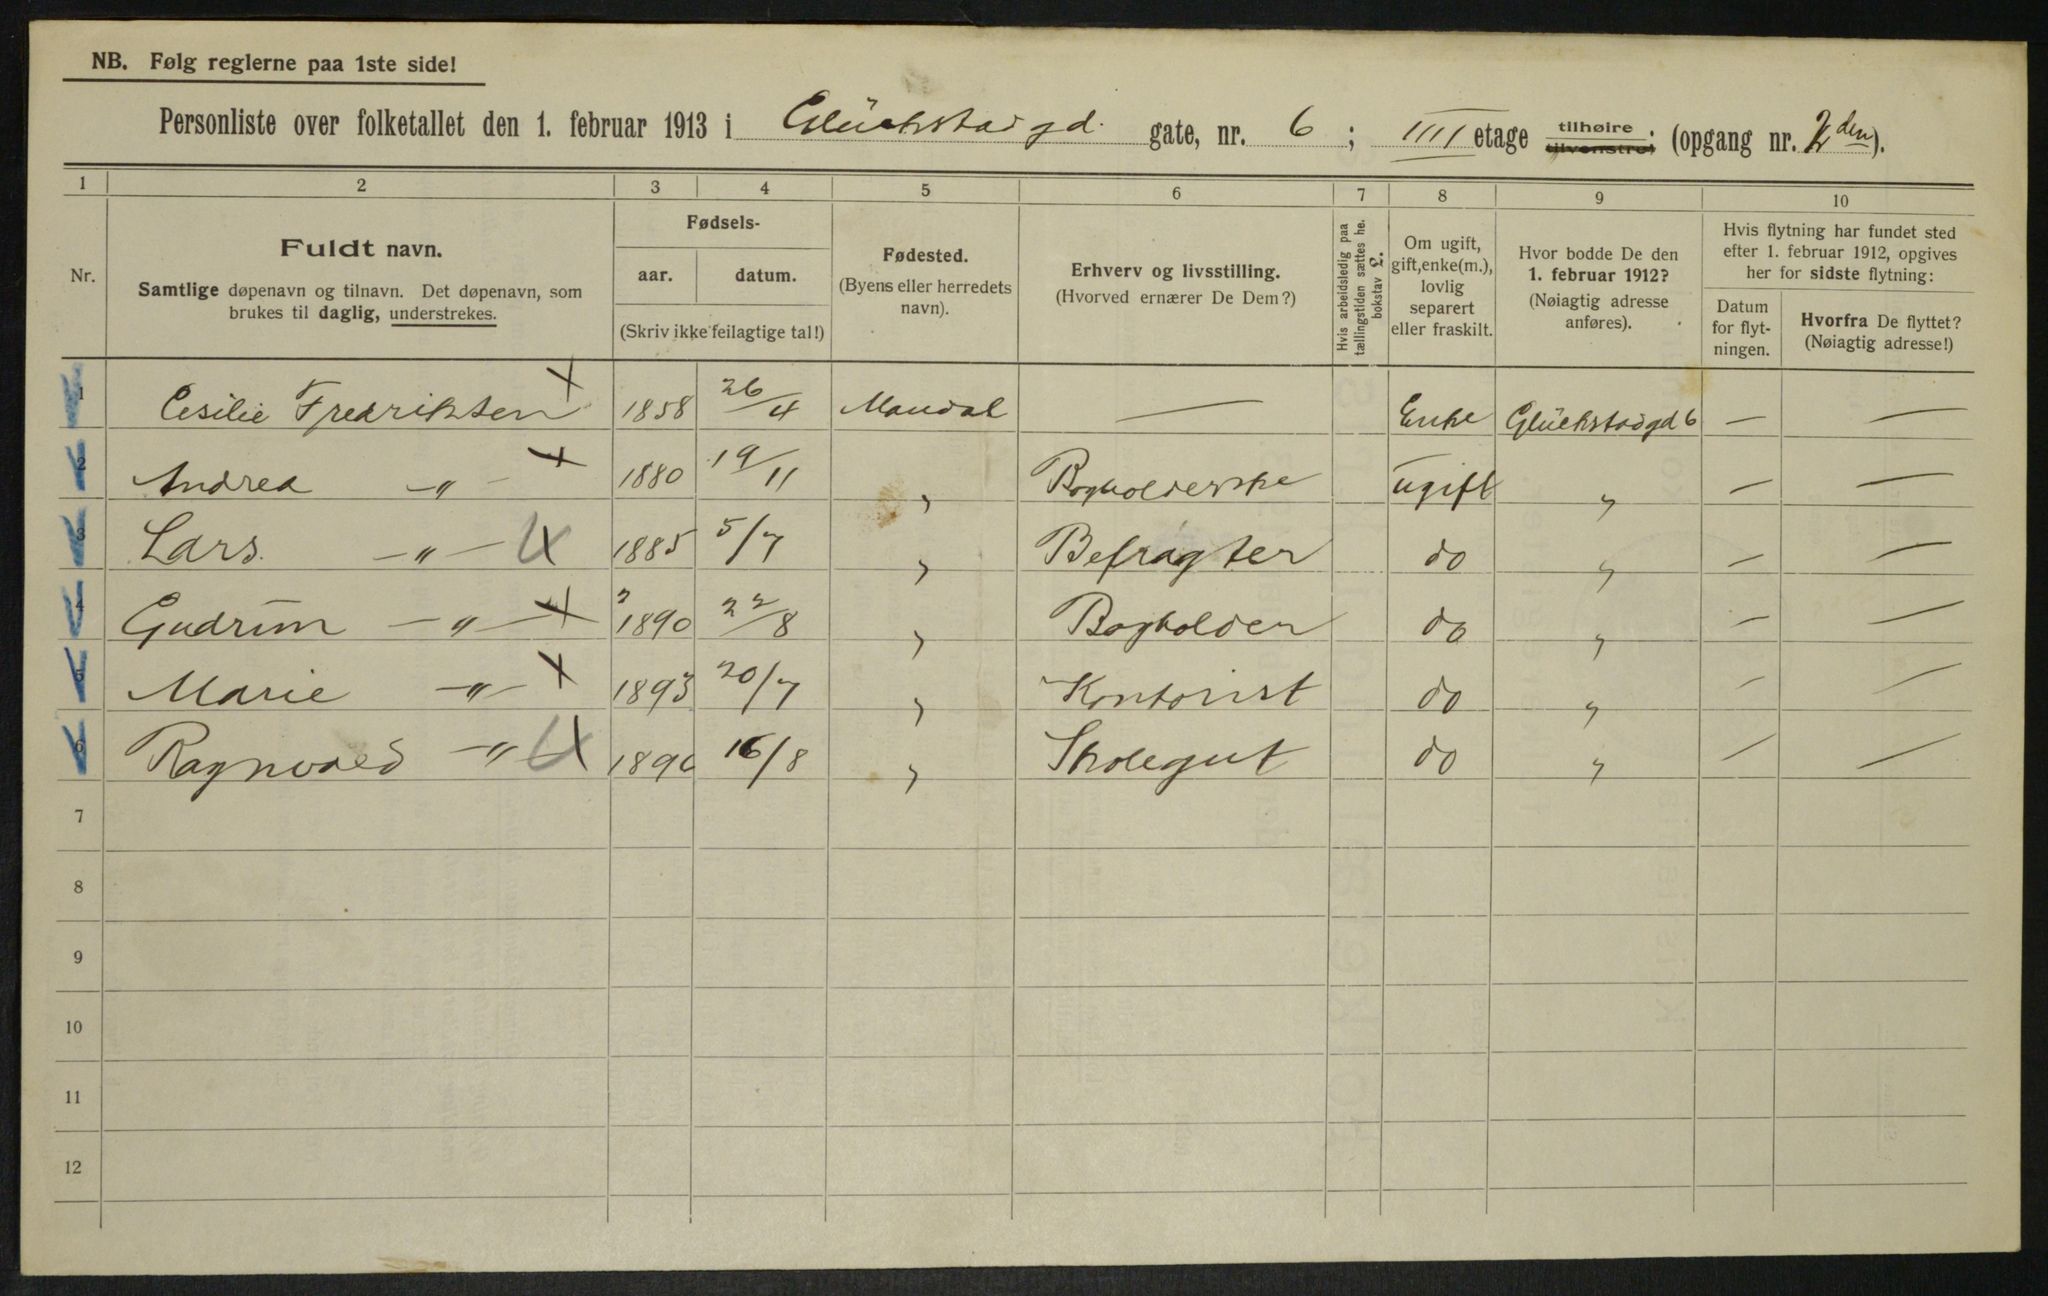 NB. Følg reglerne paa 1ste side!
Personliste over folketallet den 1. februar 1913 i Glückstadgd. gate, nr. 6; IIII etage tilhøire tilvenstre; (opgang nr. 2den).
1 2 3 4 5 6 7 8 9 10
Nr.
Fuldt navn.
Samtlige døpenavn og tilnavn. Det døpenavn, som
brukes til daglig, understrekes.
Fødsels-
aar. datum.
(Skriv ikke feilagtige tal!)
Fødested.
(Byens eller herredets
navn).
Erhverv og livsstilling.
(Hvorved ernærer De Dem?)
Hvis arbeidsledig paa
tællingstiden sættes he.
bokstav L.
Om ugift,
gift, enke(m.),
lovlig
separert
eller fraskilt.
Hvor bodde De den
1. februar 1912?
(Nøiagtig adresse
anføres).
Hvis flytning har fundet sted
efter 1. februar 1912, opgives
her for sidste flytning:
Datum
for flyt-
ningen.
Hvorfra De flyttet?
(Nøiagtig adresse!)
1 Cesilie Fredriksen 1858 26/4 Mandal — Enke Glückstadgd 6 — —
2 Andrea —„— 1880 19/11 „ Bogholderske ugift „ — —
3 Lars. —„— 1885 5/7 „ Befragter do „ — —
4 Gudrun —„— 1890 22/8 „ Bogholder do „ — —
5 Marie —„— 1893 20/7 „ Kontorist do „ — —
6 Ragnvald —„— 1896 16/8 „ Skolegut do „ — —
7
8
9
10
11
12